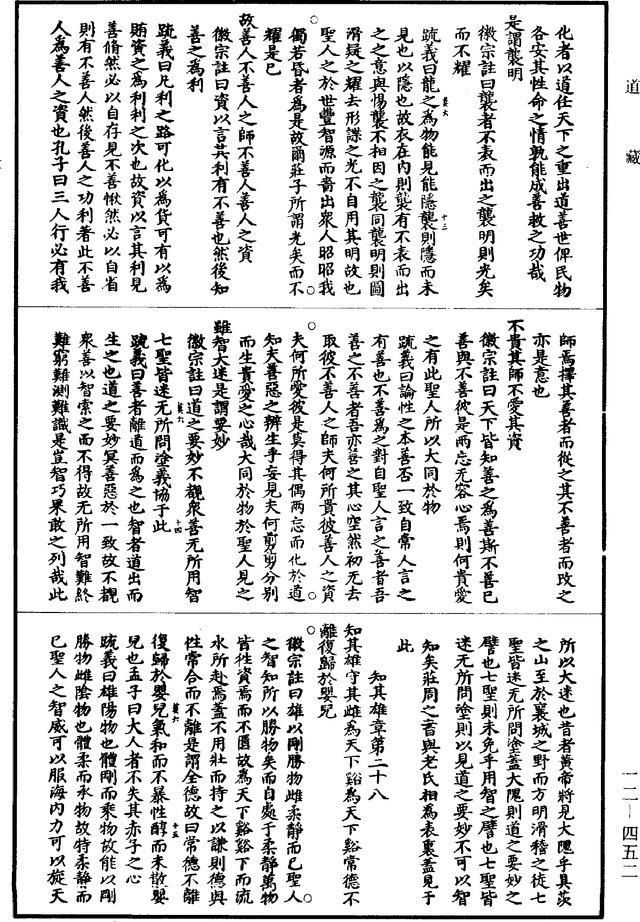 道藏
化者以道任天下之重出道善世俾民物
各安其性命之情孰能成善救之功哉
是謂襲明
徽宗註曰襲者不表而出之襲明則光矣
而不耀
疏義曰龍之為物能見能隱襲則隱而未
見也以隱也故衣在內則襲有不表而出
之之意與惕襲不相因之襲同襲明則圖
滑疑之耀去形諜之光不自用其明故也
聖人之於世豐智源而嗇出衆人昭昭我
獨若昏者為是故爾莊子所謂光矣而不
耀是已
故善人不善人之師不善人善人之資
徽宗註曰資以言其利有不善也然後知
善之為利
疏義曰凡利之路可化以為貨可有以為
賄資之為利利之次也故資以言其利見
善脩然必以自存見不善愀然必以自省
則有不善人然後善人之功利者此不善
人為善人之資也孔子曰三人行必有我
師焉擇其善者而從之其不善者而攺之
亦是意也
不貴其師不愛其資
徽宗註曰天下皆知善之為善斯不善已
善與不善彼是兩忘无容心焉則何貴愛
之有此聖人所以大同於物
疏義曰論性之本善否一致自常人言之
有善也不善為之對自聖人言之善者吾
善之不善者吾亦善之其心空然初无去
取彼不善人之師夫何所貴彼善人之資
夫何所愛彼是莫得其偶兩忘而化於道
知夫善惡之辨生乎妄見夫何剪剪分別
而生貴愛之心哉大同於物於聖人見之
雖智大迷是謂要妙
徽宗註曰道之要妙不覩衆善无所用智
七聖皆迷无所問塗義協于此
疏義曰善者離道而為之也智者道出而
生之也道之要妙冥善惡於一致故不覩
衆善以智索之而不得故无所用智難終
難窮難測難識是豈智巧果敢之列哉此
所以大迷也昔者黃帝將見大隗乎具茨
之山至於襄城之野而方明滑稽之徒七
聖皆迷无所問塗蓋大隗則道之要妙之
譬也七聖則未免乎用智之譬也七聖皆
迷无所問塗則以見道之要妙不可以智
知矣莊周之書與老氏相為表裏蓋見于
此
知其雄章第二十八
知其雄守其雌為天下谿為天下谿常德不
離復歸於嬰兒
徽宗註曰雄以剛勝物雌柔靜而已聖人
之智知所以勝物矣而自處于柔靜萬物
皆徃資焉而不匱故為天下谿谿下而流
水所赴焉蓋不用壯而持之以謙則德與
性常合而不離是謂全德故曰常德不離
復歸於嬰兒氣和而不暴性醇而未散嬰
兒也孟子曰大人者不失其赤子之心
疏義曰雄陽物也體剛而乘物故能以剛
勝物雌陰物也體柔而承物故特柔靜而
已聖人之智威可以服海內力可以旋天
一二—四五二